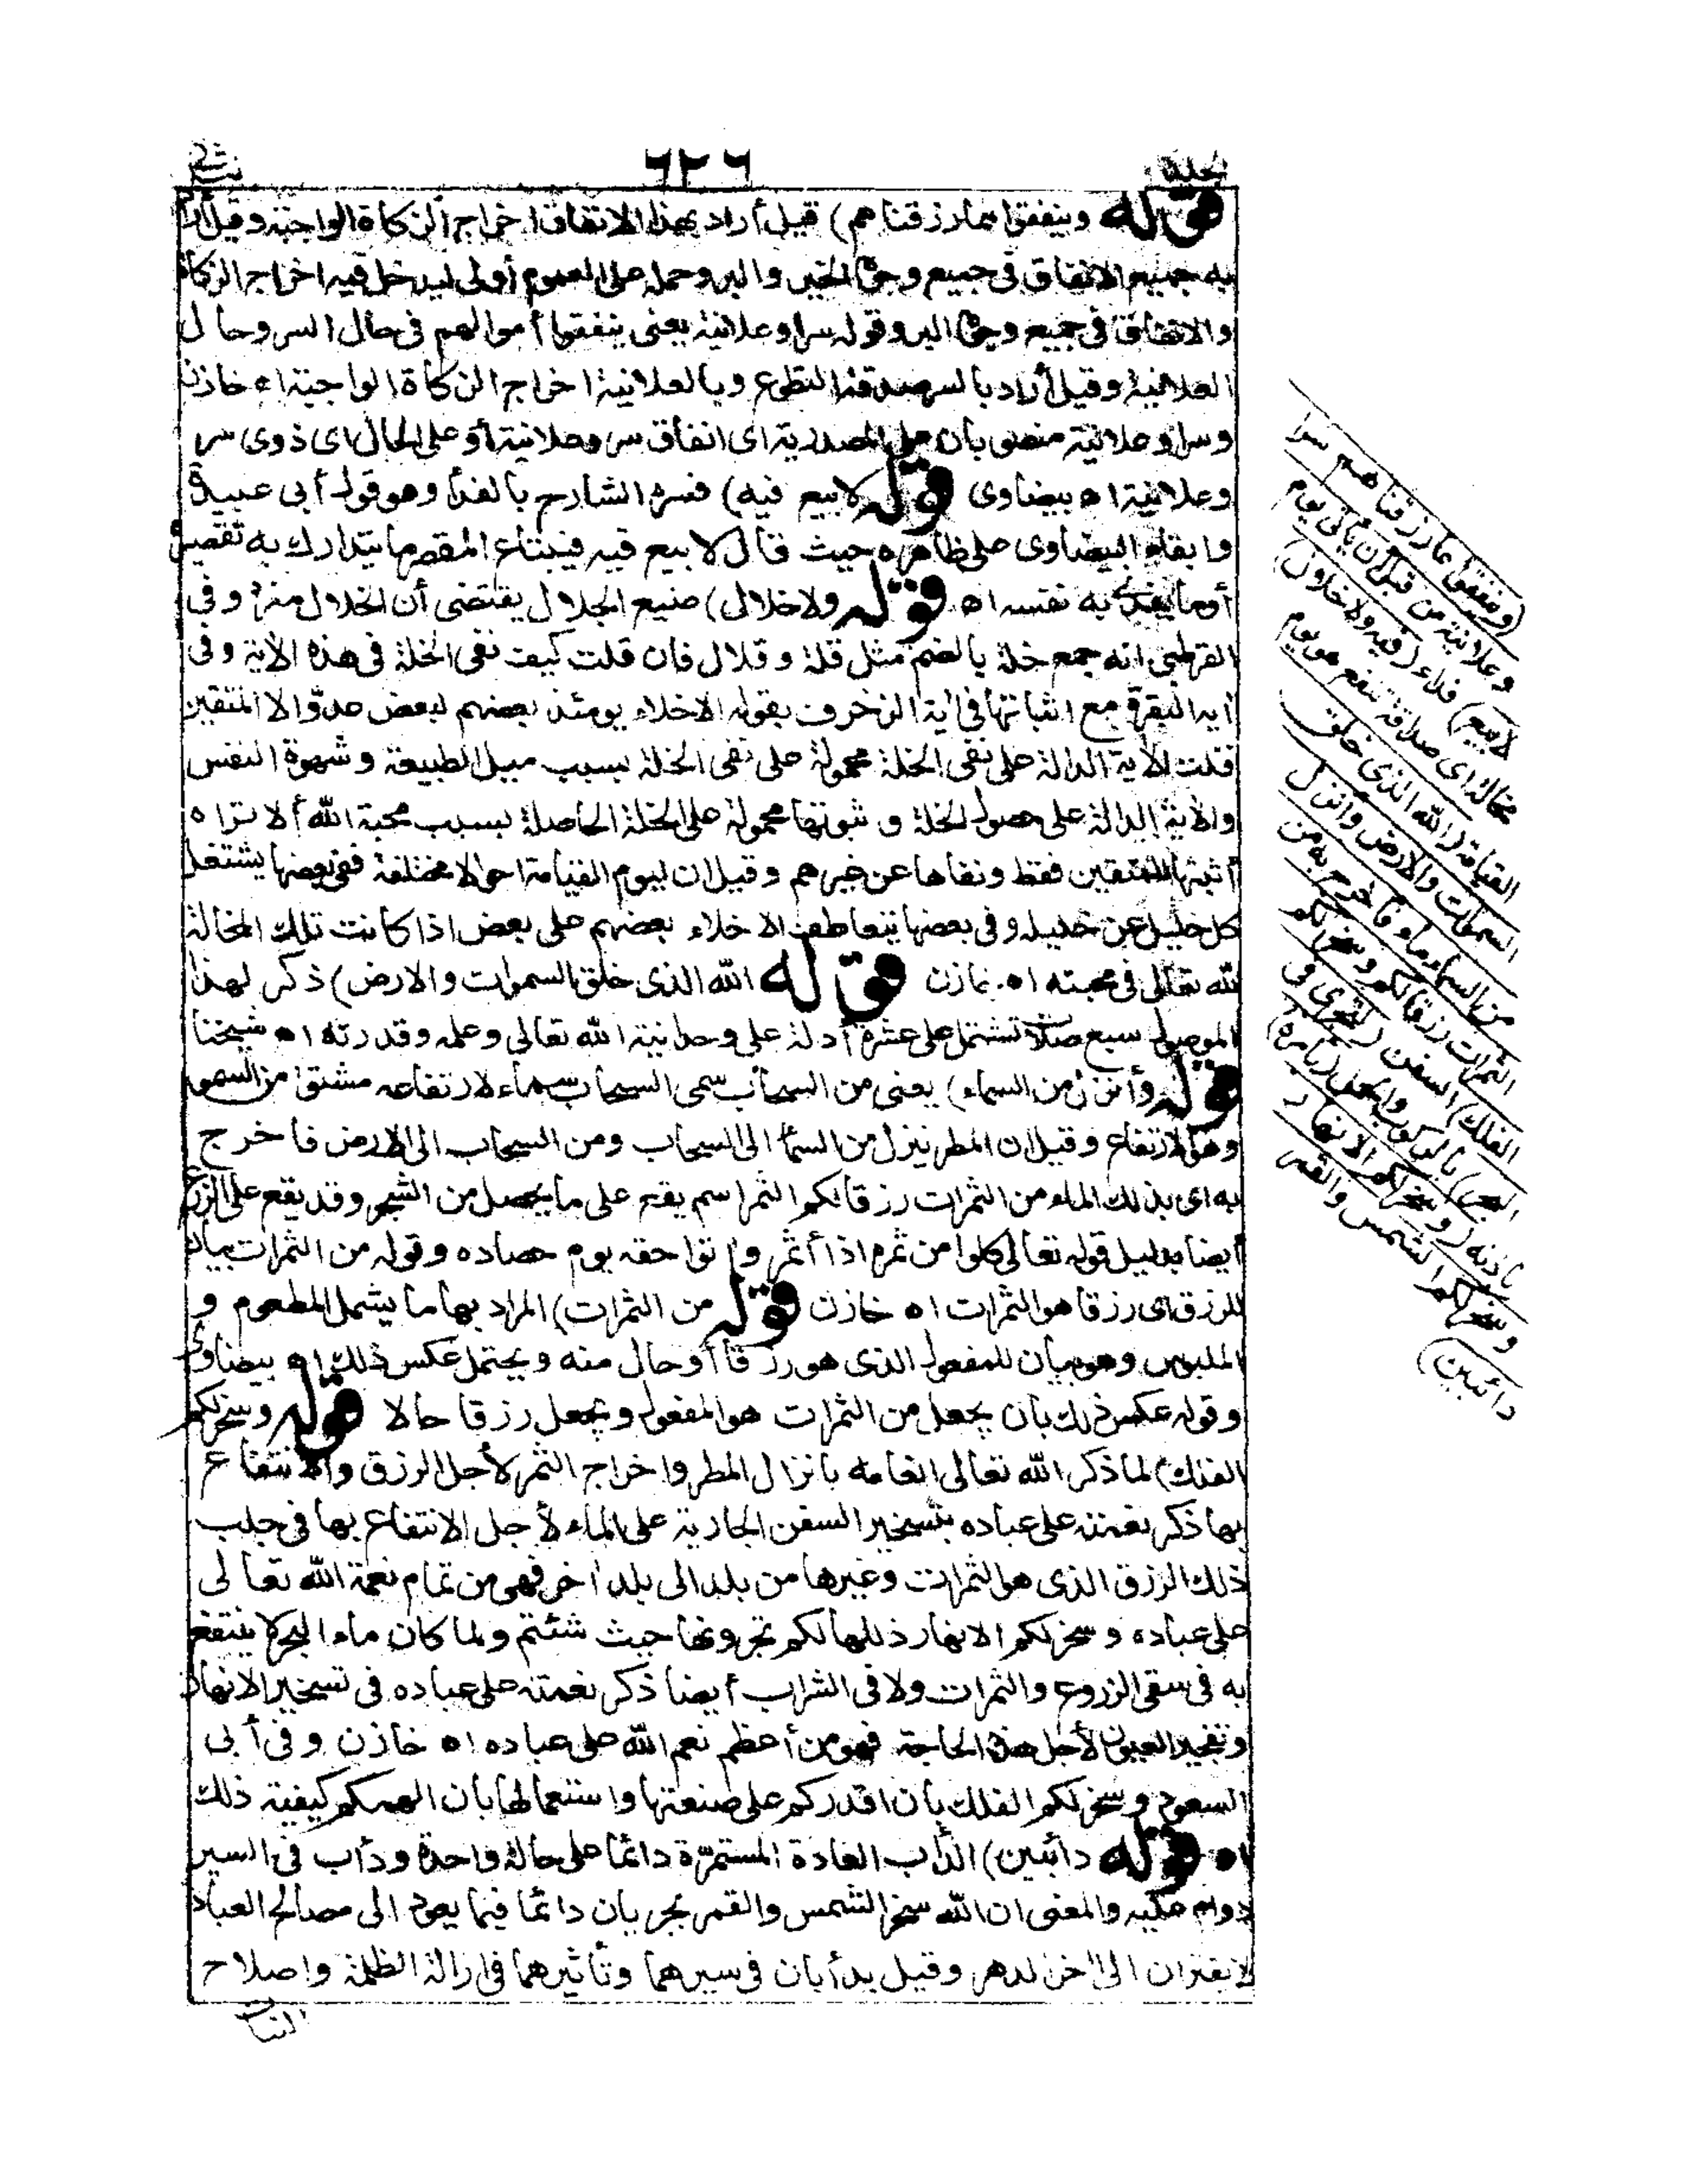 ٦٢٦
قوله وينفقوا مما رزقناهم) قيل أراد بهذا الانفاق اخراج الزكاة الواجبة وقيل أراد
به جميع الانفاق في جميع وجوه الخير والبر وحمله على العموم أولى ليدخل فيه اخراج الزكاة
والانفاق في جميع وجوه البر وقوله سرا وعلانية يعنى ينفقوا أموالهم في حال السر وحال
العلانية وقيل أراد بالسر صدقة التطوع وبالعلانية اخراج الزكاة الواجبة اه خازن
وسرا وعلانية منصوبان على المصدرية اى انفاق سر وعلانية أو على الحال اى ذوى سر
وعلانية اه بيضاوى قوله لا بيع فيه) فسره الشارح بالفداء وهو قول أبى عبيدة
وابقاه البيضاوى على ظاهره حيث قال لا بيع فيه فيبتاع المقصر ما يتدارك به تقصيره
أو ما يفدى به نفسه اه قوله ولا خلال) صنيع الجلال يقتضى أن الخلال مفرد وفى
القرطبى انه جمع خلة بالضم مثل قلة وقلال فان قلت كيف نفى الخلة فى هذه الآية وفى
آية البقرة مع اثباتها فى آية الزخرف بقوله الاخلاء يومئذ بعضهم لبعض عدوّ الا المتقين
قلت الآية الدالة على نفى الخلة محمولة على نفى الخلة بسبب ميل الطبيعة وشهوة النفس
والآية الدالة على حصول الخلة وثبوتها محمولة على الخلة الحاصلة بسبب محبة الله ألا تراه
أثبتها للمتقين فقط ونفاها عن غيرهم وقيل ان ليوم القيامة احوالا مختلفة ففى بعضها يشتغل
كل خليل عن خليله وفى بعضها يتعاطف الاخلاء بعضهم على بعض اذا كانت تلك المخالة
لله تعالى فى محبته اه خازن قوله الله الذى خلق السموات والارض) ذكر لهذا
الموصول سبع صلات تشتمل على عشرة أدلة على وحدانية الله تعالى وعلمه وقدرته اه شيخنا
قوله وأنزل من السماء) يعنى من السحاب سمى السحاب سماء لارتفاعه مشتق من السمو
وهو الارتفاع وقيل ان المطر ينزل من السماء الى السحاب ومن السحاب الى الارض فاخرج
به اى بذلك الماء من الثمرات رزقا لكم الثمر اسم يقع على ما يحصل من الشجر وقد يقع على الزرع
أيضا بدليل قوله تعالى كلوا من ثمره اذا أثمر وآتوا حقه يوم حصاده وقوله من الثمرات بيان
للرزق اى رزقا هو الثمرات اه خازن قوله من الثمرات) المراد بها ما يشمل المطعوم و
الملبوس وهو بيان للمفعول الذى هو رزقا أو حال منه ويحتمل عكس ذلك اه بيضاوى
وقوله عكس ذلك بان يجعل من الثمرات هو المفعول ويجعل رزقا حالا قوله وسخر لكم
الفلك) لما ذكر الله تعالى انعامه بانزال المطر واخراج الثمر لأجل الرزق والانتفاع
بها ذكر نعمته على عباده بتسخير السفن الجارية على الماء لأجل الانتفاع بها فى جلب
ذلك الرزق الذى هو الثمرات وغيرها من بلد الى بلد آخر فهى من تمام نعمة الله تعالى
على عباده وسخر لكم الانهار ذللها لكم تجرونها حيث شئتم ولما كان ماء البحر لا ينتفع
به فى سقى الزروع والثمرات ولا فى الشراب أيضا ذكر نعمته على عباده فى تسخير الانهار
وتفجير العيون لأجل هذه الحاجة فهو من أعظم نعم الله على عباده اه خازن وفى أبى
السعود وسخر لكم الفلك بأن اقدركم على صنعتها واستعمالها بان الهمكم كيفية ذلك
اه قوله دائبين) الدأب العادة المستمرّة دائما على حالة واحدة ودأب فى السير
داوم عليه والمعنى ان الله سخر الشمس والقمر يجريان دائما فيما يعود الى مصالح العباد
لا يفتران الى آخر الدهر وقيل يدأبان فى سيرهما وتأثيرهما فى ازالة الظلمة واصلاح
(وينفقوا مما رزقناهم سرا
وعلانية من قبل أن يأتى يوم
لا بيع) فداء (فيه ولا خلال)
مخالة اى صداقة تنفع هو يوم
القيامة (الله الذى خلق
السموات والارض وانزل
من السماء ماء فاخرج به من
الثمرات رزقا لكم وسخر لكم
الفلك) السفن (لتجرى فى
البحر) بالركوب والحمل (بامره)
باذنه (وسخر لكم الانهار
وسخر لكم الشمس والقمر
دائبين)